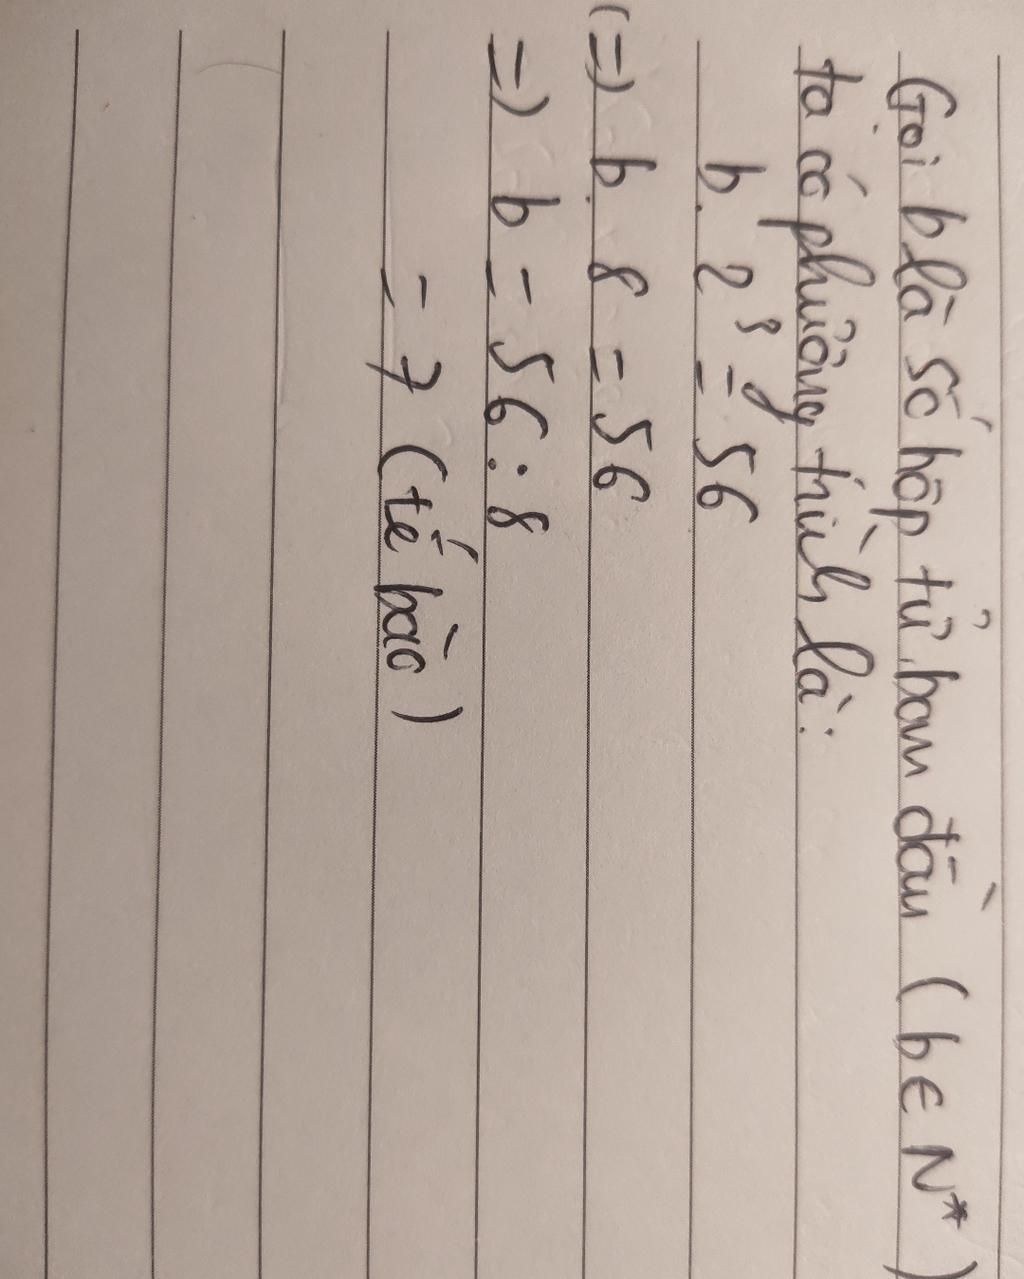 Gọi b là số hợp tử ban đầu (b ∈ N*)
ta có phương trình là:
b. 2³ = 56
(=) b. 8 = 56
=) b = 56 : 8
= 7 (tế bào)